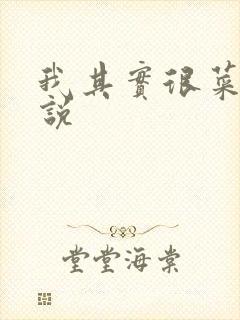 我其實很菜
說
堂堂海棠